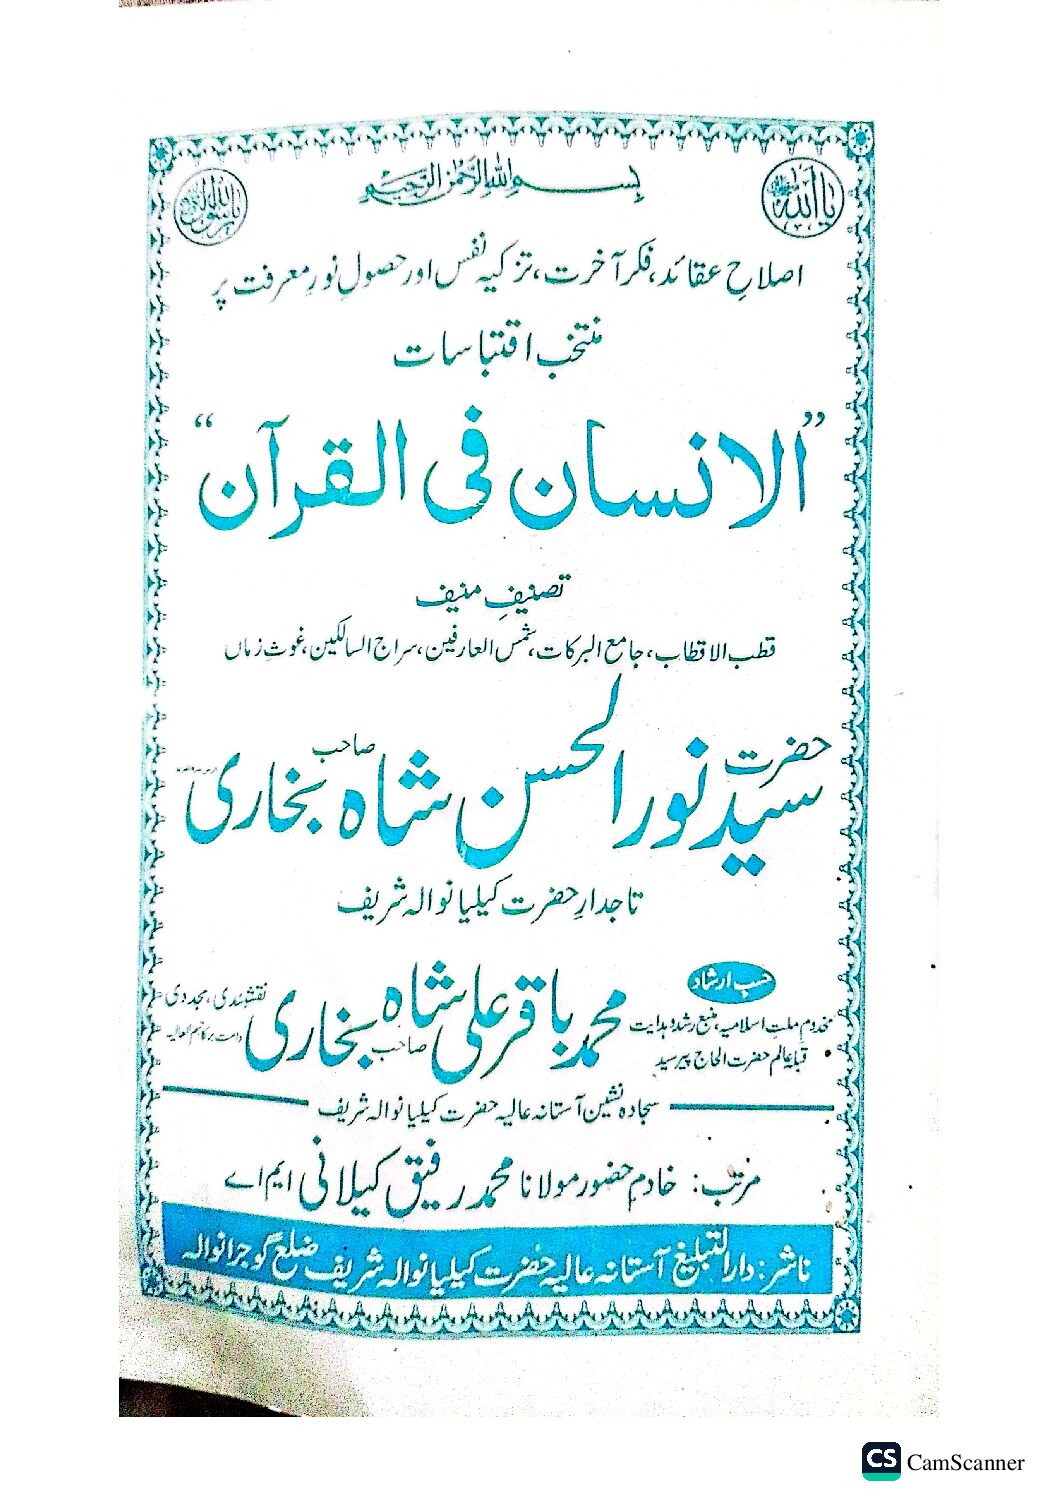 بسم اللہ الرحمٰن الرحیم
یا اللہ
یا رسول اللہ
اصلاحِ عقائد، فکرِ آخرت، تزکیہ نفس اور حصولِ نورِ معرفت پر
منتخب اقتباسات
”الانسان فی القرآن“
تصنیفِ منیف
قطب الاقطاب، جامع البرکات، شمس العارفین، سراج السالکین، غوثِ زماں
حضرت سید نور الحسن شاہ صاحب بخاری
تاجدارِ حضرت کیلیانوالہ شریف
حسب ارشاد
مخدومِ ملتِ اسلامیہ، منبع رشد و ہدایت
قبلہ عالم حضرت الحاج پیر سید
محمد باقر علی شاہ صاحب بخاری
نقشبندی، مجددی
دامت برکاتہم العالیہ
سجادہ نشین آستانہ عالیہ حضرت کیلیانوالہ شریف
مرتب: خادمِ حضور مولانا محمد رفیق کیلانی ایم اے
ناشر: دارالتبلیغ آستانہ عالیہ حضرت کیلیانوالہ شریف ضلع گوجرانوالہ
CS CamScanner